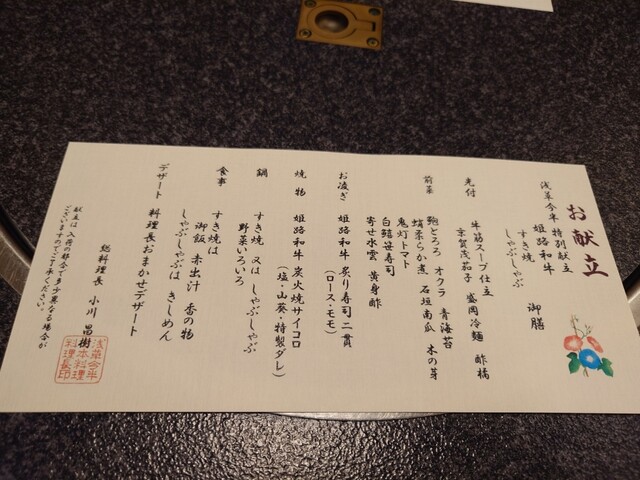 お献立
浅草今半 特別献立
姫路和牛
すき焼 御膳
しゃぶしゃぶ
先付 牛筋スープ仕立
京賀茂茄子 盛岡冷麺 酢橘
前菜 鮑とろろ オクラ 青海苔
蛸柔らか煮 石垣南瓜 木の芽
鬼灯トマト
白鱚笹寿司
寄せ水雲 黄身酢
お凌ぎ 姫路和牛 炙り寿司二貫
(ロース・モモ)
焼物 姫路和牛 炭火焼サイコロ
(塩・山葵・特製ダレ)
鍋 すき焼 又は しゃぶしゃぶ
野菜いろいろ
食事 すき焼は
御飯 赤出汁 香の物
しゃぶしゃぶは きしめん
デザート 料理長おまかせデザート
総料理長 小川 昌樹
浅草今半
日本料理
料理長印
献立は入荷の都合で多少異なる場合が
ございますのでご了承ください。